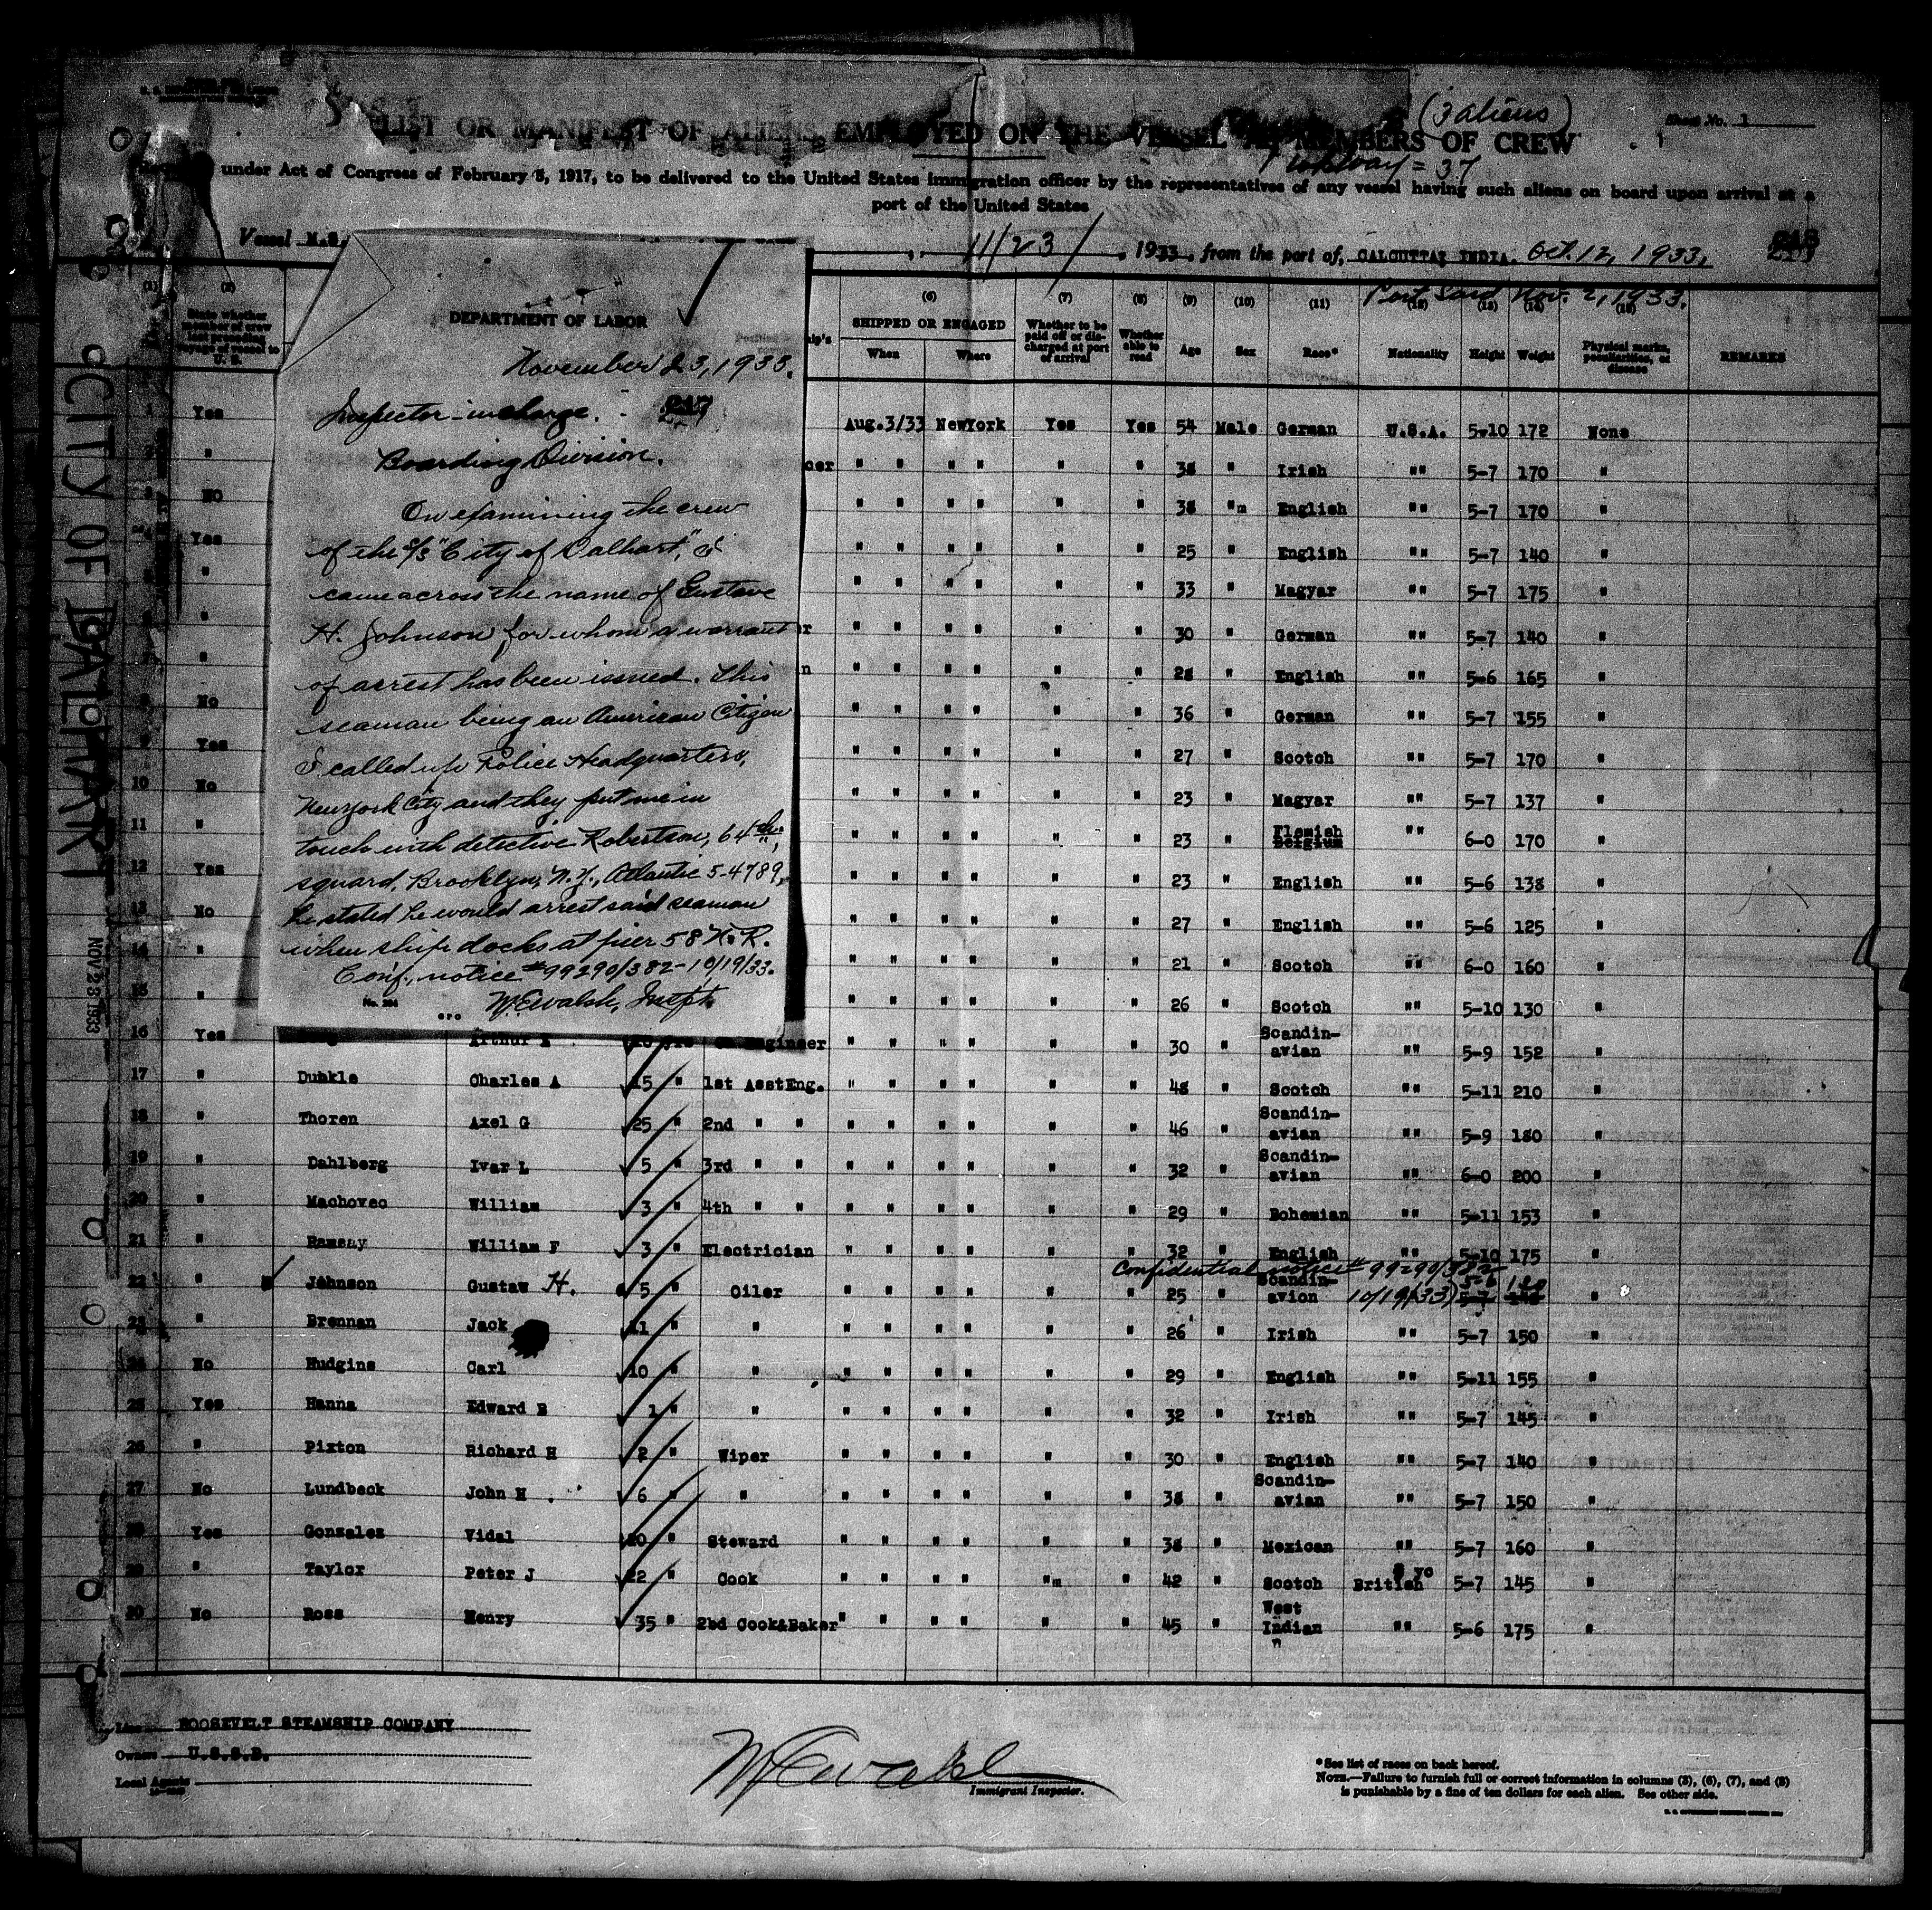 (3 aliens)
Sheet No. 1
LIST OR MANIFEST OF ALIENS EMPLOYED ON THE VESSEL AS MEMBERS OF CREW
= 37
under Act of Congress of February 5, 1917, to be delivered to the United States immigration officer by the representatives of any vessel having such aliens on board upon arrival at a
port of the United States
Vessel M.S.
11/23/, 1933, from the port of, CALCUTTA, INDIA. Oct. 12, 1933.
Port Said Nov. 2, 1933.
CITY OF DALHART
NOV 23 1933
DEPARTMENT OF LABOR
November 23, 1933.
Inspector-in-charge. 217
Boarding Division.
On examining the crew
of the S/S "City of Dalhart", I
came across the name of Gustave
H. Johnson for whom a warrant
of arrest has been issued. This
seaman being an American Citizen
I called up Police Headquarters,
New York City and they put me in
touch with detective Robertson, 64th
squard, Brooklyn, N.Y., Atlantic 5-4789,
he stated he would arrest said seaman
when ship docks at pier 58 N.R.
Conf. notice #99290/382-10/19/33.
W.E. Walsh, Insp't.
GPO
(1) (2) (6) (7) (8) (9) (10) (11)
State whether member of crew last preceding voyage of vessel to U. S.
SHIPPED OR ENGAGED
When Where
Whether to be paid off or discharged at port of arrival
Whether able to read
Age Sex Race* Nationality Height Weight
Physical marks, peculiarities, or disease
REMARKS
1 Yes Aug.3/33 NewYork Yes Yes 54 Male German U.S.A. 5-10 172 None
2 " cer " " " " " " 38 " Irish "" 5-7 170 "
3 NO " " " " " " 38 "m English "" 5-7 170 "
4 Yes " " " " " " 25 " English "" 5-7 140 "
5 " " " " " " " 33 " Magyar "" 5-7 175 "
6 " r " " " " " " 30 " German "" 5-7 140 "
7 " n " " " " " " 28 " English "" 5-6 165 "
8 No " " " " " " 36 " German "" 5-7 155 "
9 Yes " " " " " " 27 " Scotch "" 5-7 170 "
10 No " " " " " " 23 " Magyar "" 5-7 137 "
11 " " " " " " " 23 " Flemish Belgium "" 6-0 170 "
12 Yes " " " " " " 23 " English "" 5-6 138 "
13 No " " " " " " 27 " English "" 5-6 125 "
14 " " " " " " " 21 " Scotch "" 6-0 160 "
15 " " " " " " " 26 " Scotch "" 5-10 130 "
16 Yes Arthur Engineer " " " " " " 30 " Scandin-avian "" 5-9 152 "
17 " Dunkle Charles A 15 " 1st AsstEng. " " " " " " 48 " Scotch "" 5-11 210 "
18 " Thoren Axel G 25 " 2nd " " " " " " " " 46 " Scandin-avian "" 5-9 180 "
19 " Dahlberg Ivar L 5 " 3rd " " " " " " " " 32 " Scandin-avian "" 6-0 200 "
20 " Machovec William 3 " 4th " " " " " " " " 29 " Bohemian "" 5-11 153 "
21 " Ramsay William F 3 " Electrician " " " " " " 32 " English "" 5-10 175 "
Confidential notice # 99290/382
22 " Johnson Gustaw H. 5 " Oiler " " " " " " 25 " Scandin-avion 10/19/33) 5-6 "
23 " Brennan Jack 11 " " " " " " " " 26 " Irish "" 5-7 150 "
24 No Hudgins Carl 10 " " " " " " " " 29 " English "" 5-11 155 "
25 Yes Hanna Edward B 1 " " " " " " " " 32 " Irish "" 5-7 145 "
26 " Pixton Richard H 2 " Wiper " " " " " " 30 " English "" 5-7 140 "
27 No Lundbeck John H 6 " " " " " " " " 38 " Scandin-avian "" 5-7 150 "
28 Yes Gonzales Vidal 20 " Steward " " " " " " 38 " Mexican "" 5-7 160 "
29 " Taylor Peter J 22 " Cook " " " " "m " 42 " Scotch British 5-7 145 "
30 No Ross Henry 35 " 2bd Cook&Baker " " " " " " 45 " West Indian "" 5-6 175 "
Line ROOSEVELT STEAMSHIP COMPANY
Owners U.S.S.B.
Local Agents
W.E. Walsh
Immigrant Inspector.
*See list of races on back hereof.
NOTE.—Failure to furnish full or correct information in columns (3), (6), (7), and (8)
is punishable by a fine of ten dollars for each alien. See other side.